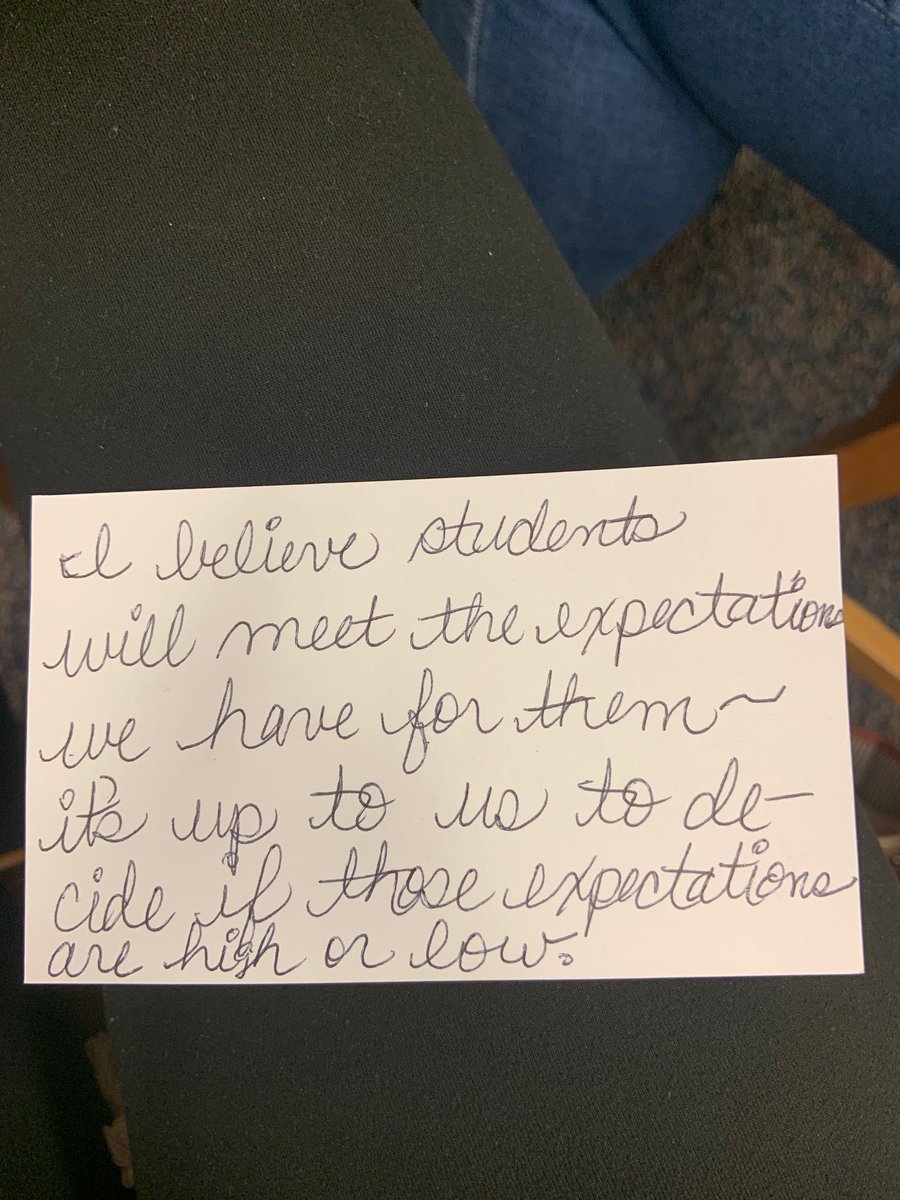 I believe students
will meet the expectations
we have for them~
it's up to us to de-
cide if those expectations
are high or low.